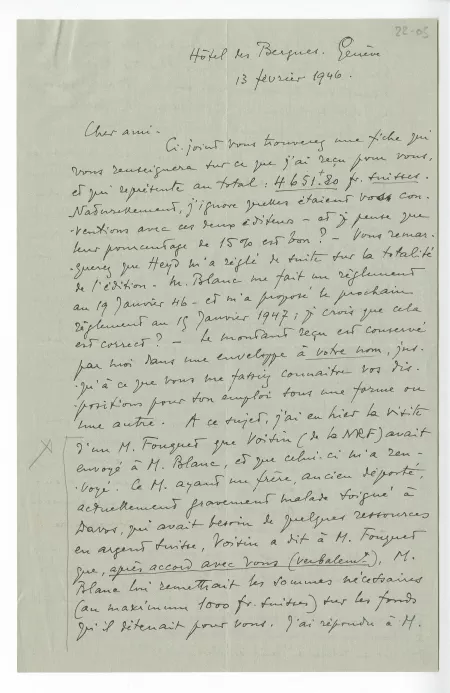 22-05
Hôtel des Bergues. Genève
13 février 1946.
Cher ami.
Ci-joint vous trouverez une fiche qui
vous renseignera sur ce que j'ai reçu pour vous,
et qui représente au total : 4651.80 fr. suisses.
Naturellement, j'ignore quelles étaient vos con-
-ventions avec ces deux éditeurs - et je pense que
leur pourcentage de 15% est bon ? - Vous remar-
-querez que Heyd m'a réglé de suite sur la totalité
de l'édition. M. Blanc me fait un règlement
au 19 Janvier 46 - et m'a proposé le prochain
règlement au 15 Janvier 1947 ; je crois que cela
est correct ? - Le montant reçu est conservé
par moi dans une enveloppe à votre nom, jus-
-qu'à ce que vous me fassiez connaître vos dis-
-positions pour son emploi sous une forme ou
une autre. A ce sujet, j'ai eu hier la visite
d'un M. Fouquet que Voisin (de la NRF) avait
envoyé à M. Blanc, et que celui-ci m'a ren-
-voyé. Ce M. ayant un frère, ancien déporté,
actuellement gravement malade soigné à
Davos, qui avait besoin de quelques ressources
en argent suisse, Voisin a dit à M. Fouquet
que, après accord avec vous (verbalemt), M.
Blanc lui remettrait les sommes nécessaires
(au maximum 1000 fr. suisses) sur les fonds
qu'il détenait pour vous. J'ai répondu à M.